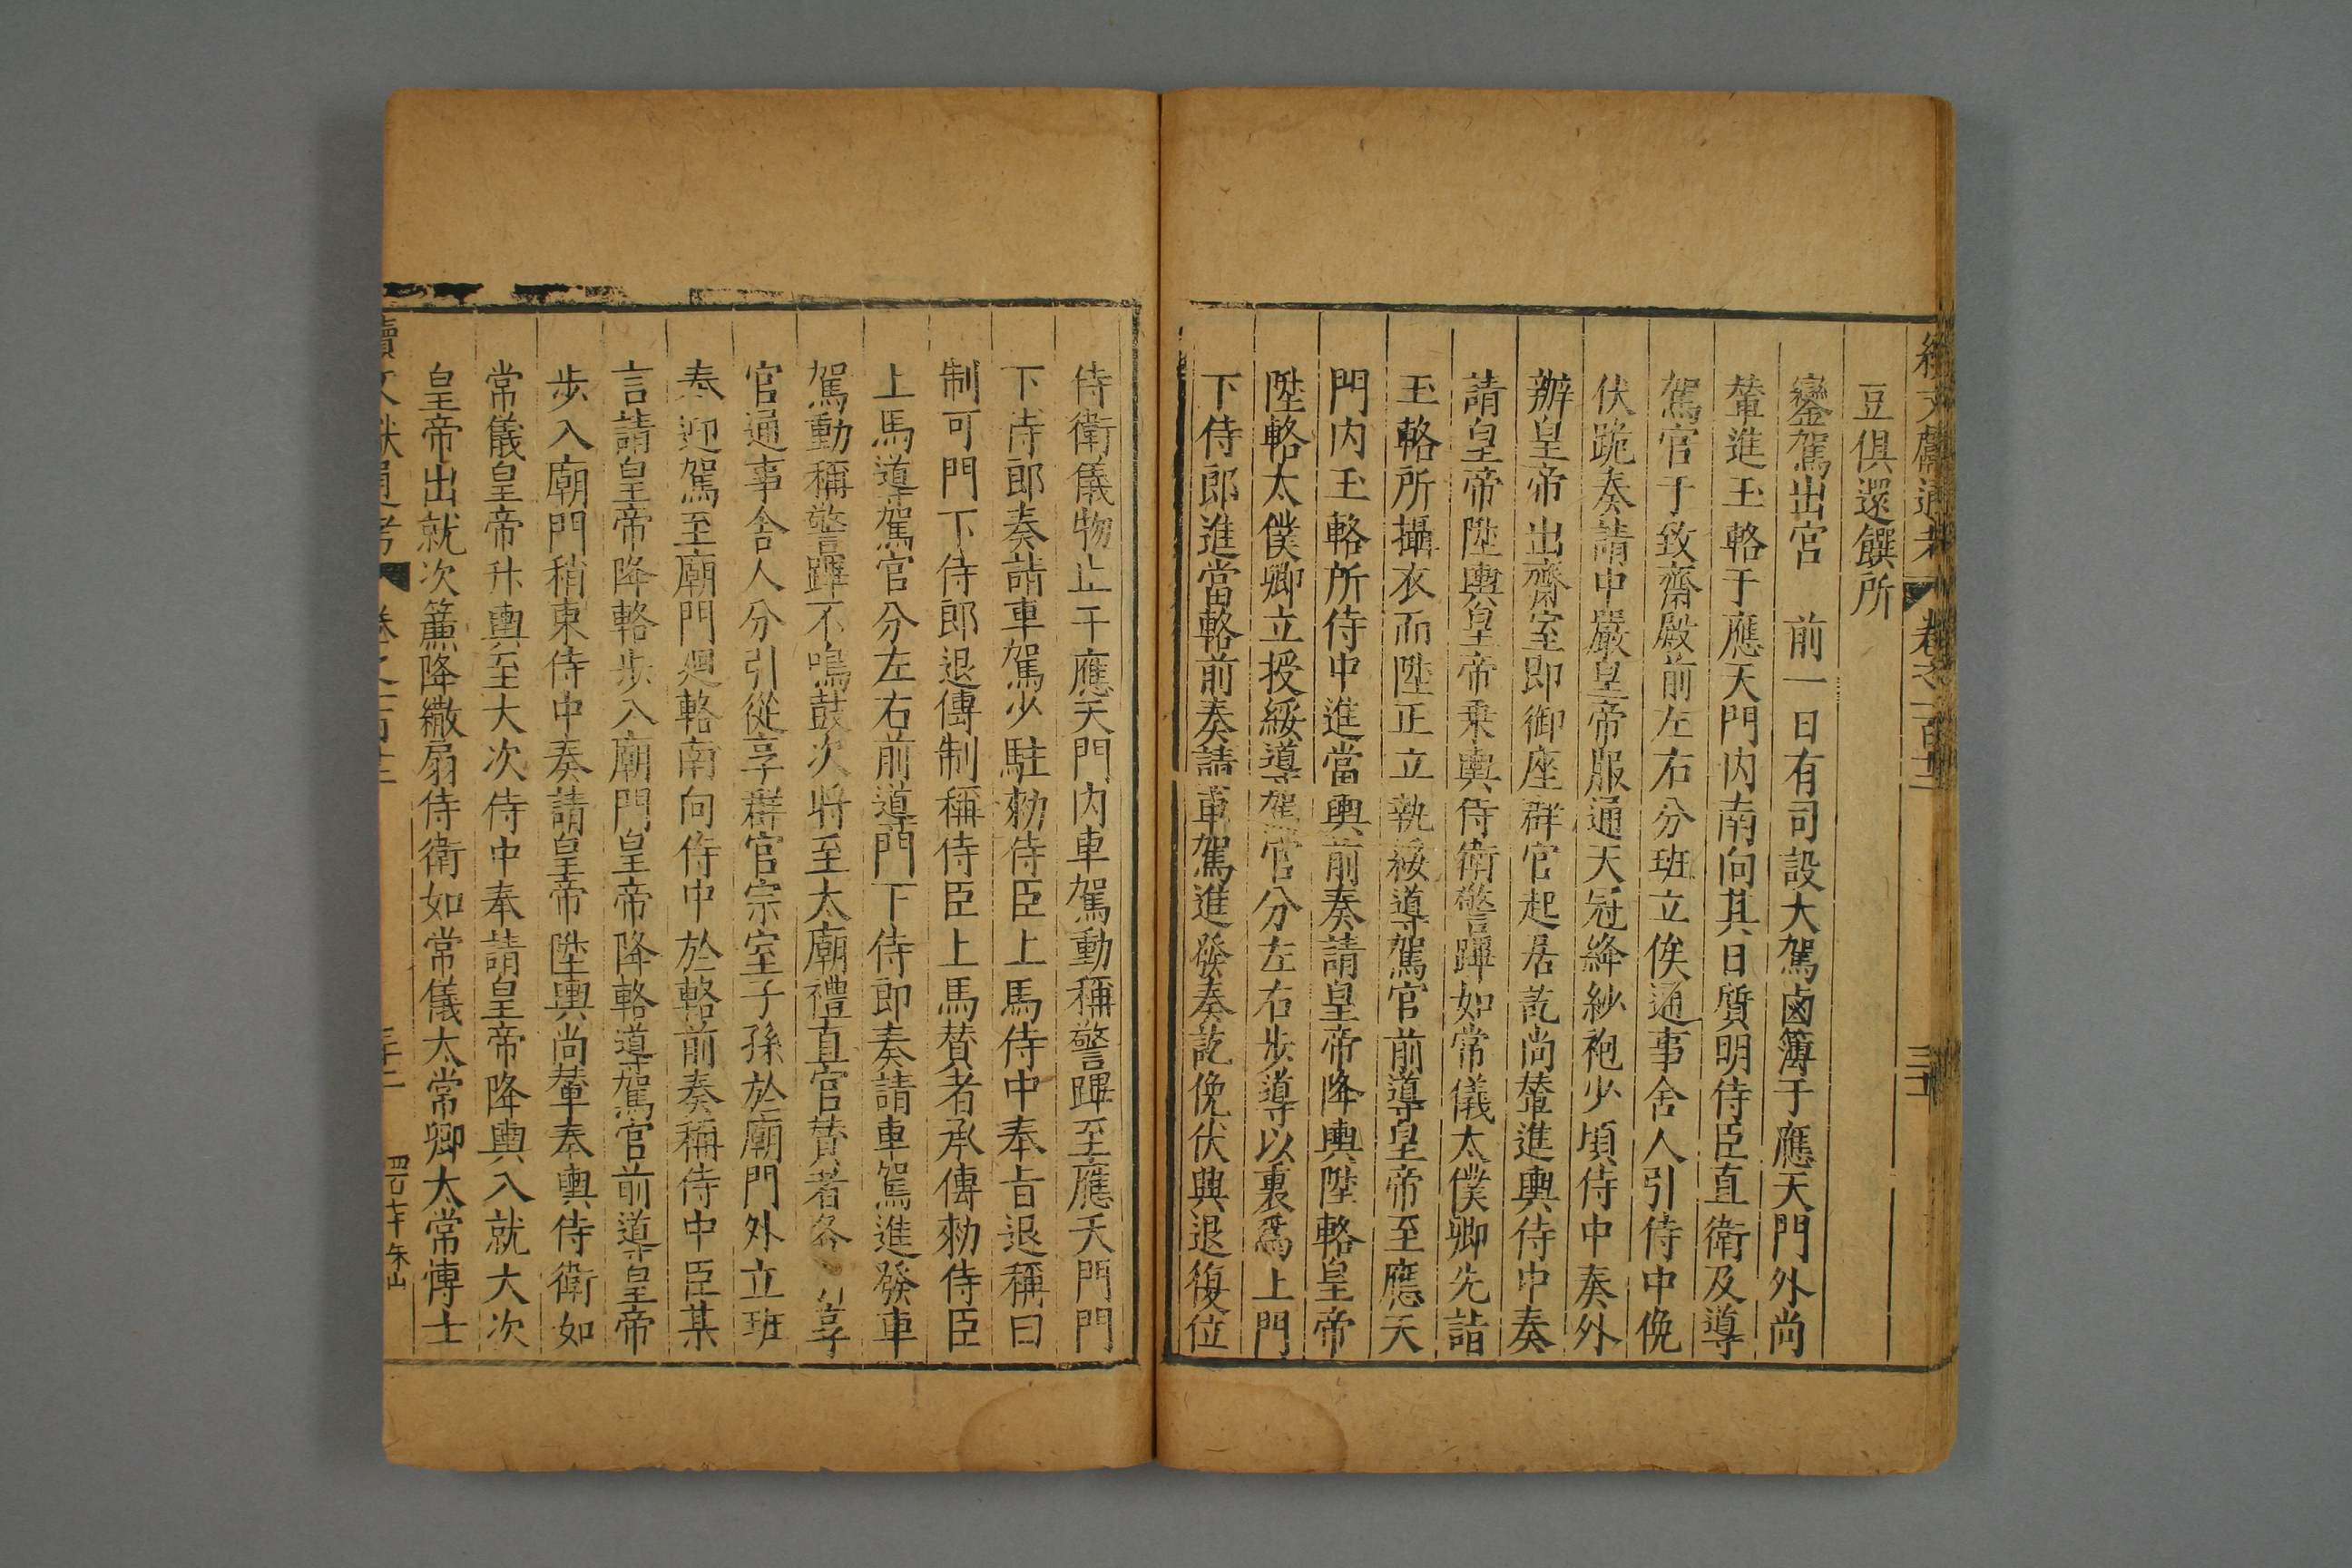 續文獻通考 卷之一百十三
豆俱還饌所
鑾駕出宮 前一日有司設大駕鹵簿于應天門外尚
輦進玉輅于應天門內南向其日質明侍臣直衛及導
駕官于致齋殿前左右分班立俟通事舍人引侍中俛
伏跪奏請中嚴皇帝服通天冠絳紗袍少頃侍中奏外
辦皇帝出齋室即御座群官起居訖尚輦進輿侍中奏
請皇帝陞輿皇帝乗輿侍衛警蹕如常儀太僕卿先詣
玉輅所攝衣而陞正立執綏導駕官前導皇帝至應天
門內玉輅所侍中進當輿前奏請皇帝降輿陞輅皇帝
陞輅太僕卿立授綏導駕官分左右步導以裏爲上門
下侍郎進當輅前奏請車駕進發奏訖俛伏興退復位
侍衛儀物止于應天門內車駕動稱警蹕至應天門門
下侍郎奏請車駕少駐勑侍臣上馬侍中奉旨退稱曰
制可門下侍郎退傳制稱侍臣上馬贊者承傳勑侍臣
上馬導駕官分左右前導門下侍郎奏請車駕進發車
駕動稱警蹕不鳴鼓次將至太廟禮直官贊者各引享
官通事舍人分引從享群官宗室子孫於廟門外立班
奉迎駕至廟門廻輅南向侍中於輅前奏稱侍中臣某
言請皇帝降輅步入廟門皇帝降輅導駕官前導皇帝
步入廟門稍東侍中奏請皇帝陞輿尚輦奉輿侍衛如
常儀皇帝升輿至大次侍中奉請皇帝降輿入就大次
皇帝出就次簾降繖扇侍衛如常儀太常卿太常博士
續文獻通考 卷之一百十三